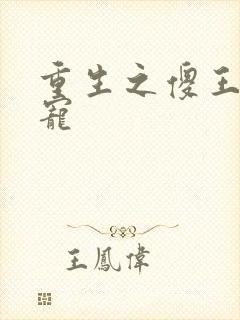 重生之傻王
寵
王鳳偉